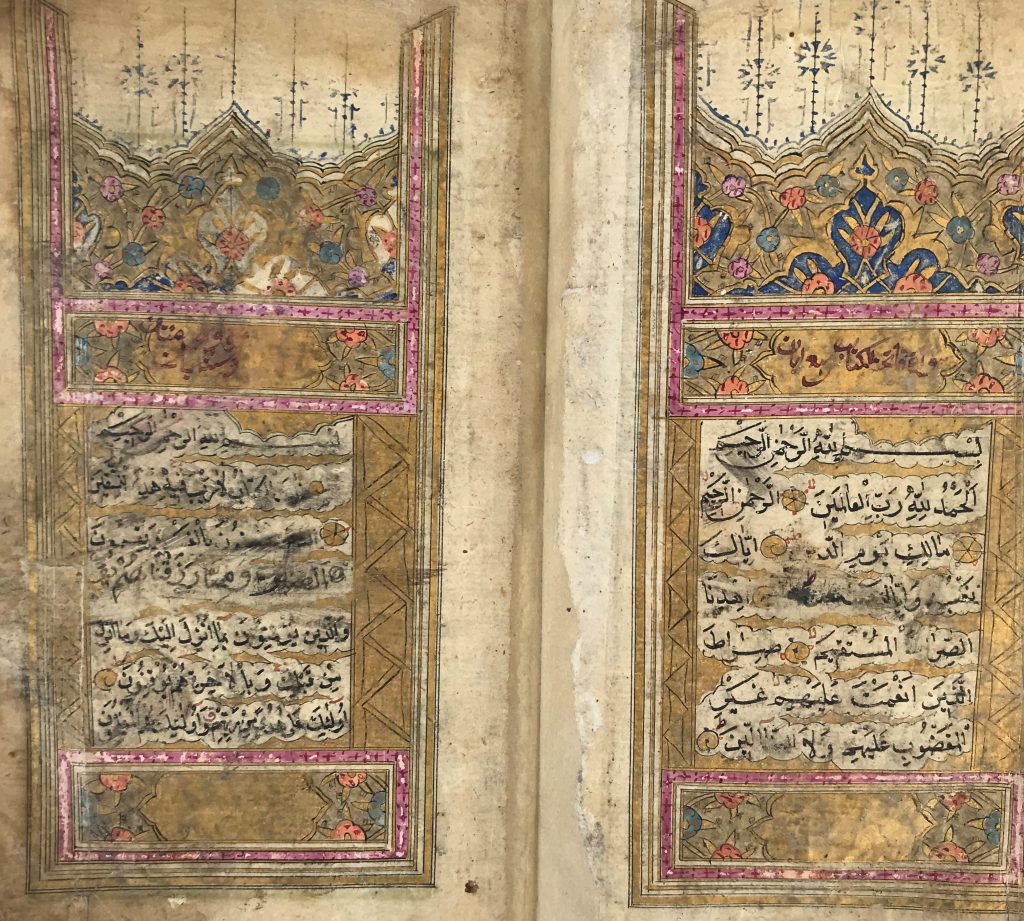 سورة فاتحة الكتاب سبع آيات
بِسْمِ اللهِ الرَّحْمٰنِ الرَّحِيْمِ
اَلْحَمْدُ لِلّٰهِ رَبِّ الْعَالَمِيْنَ الرَّحْمٰنِ الرَّحِيْمِ
مَالِكِ يَوْمِ الدّ اِيَّاكَ
وَاِيَّاكَ
الْمُسْتَقِيْمَ صِرَاطَ
الَّذِيْنَ اَنْعَمْتَ عَلَيْهِمْ غَيْرِ
الْمَغْضُوْبِ عَلَيْهِمْ وَلَا الضَّالِّيْنَ
بسم الله الرحمن الرحيم
لا ريب فيه هدى للمتقين
بالغيب ويقيمون
الصلوة ومما رزقناهم
والذين يؤمنون بما انزل اليك وما انزل
من قبلك وبالآخرة هم يوقنون
اولئك على هدى من ربهم واولئك هم المفلحون